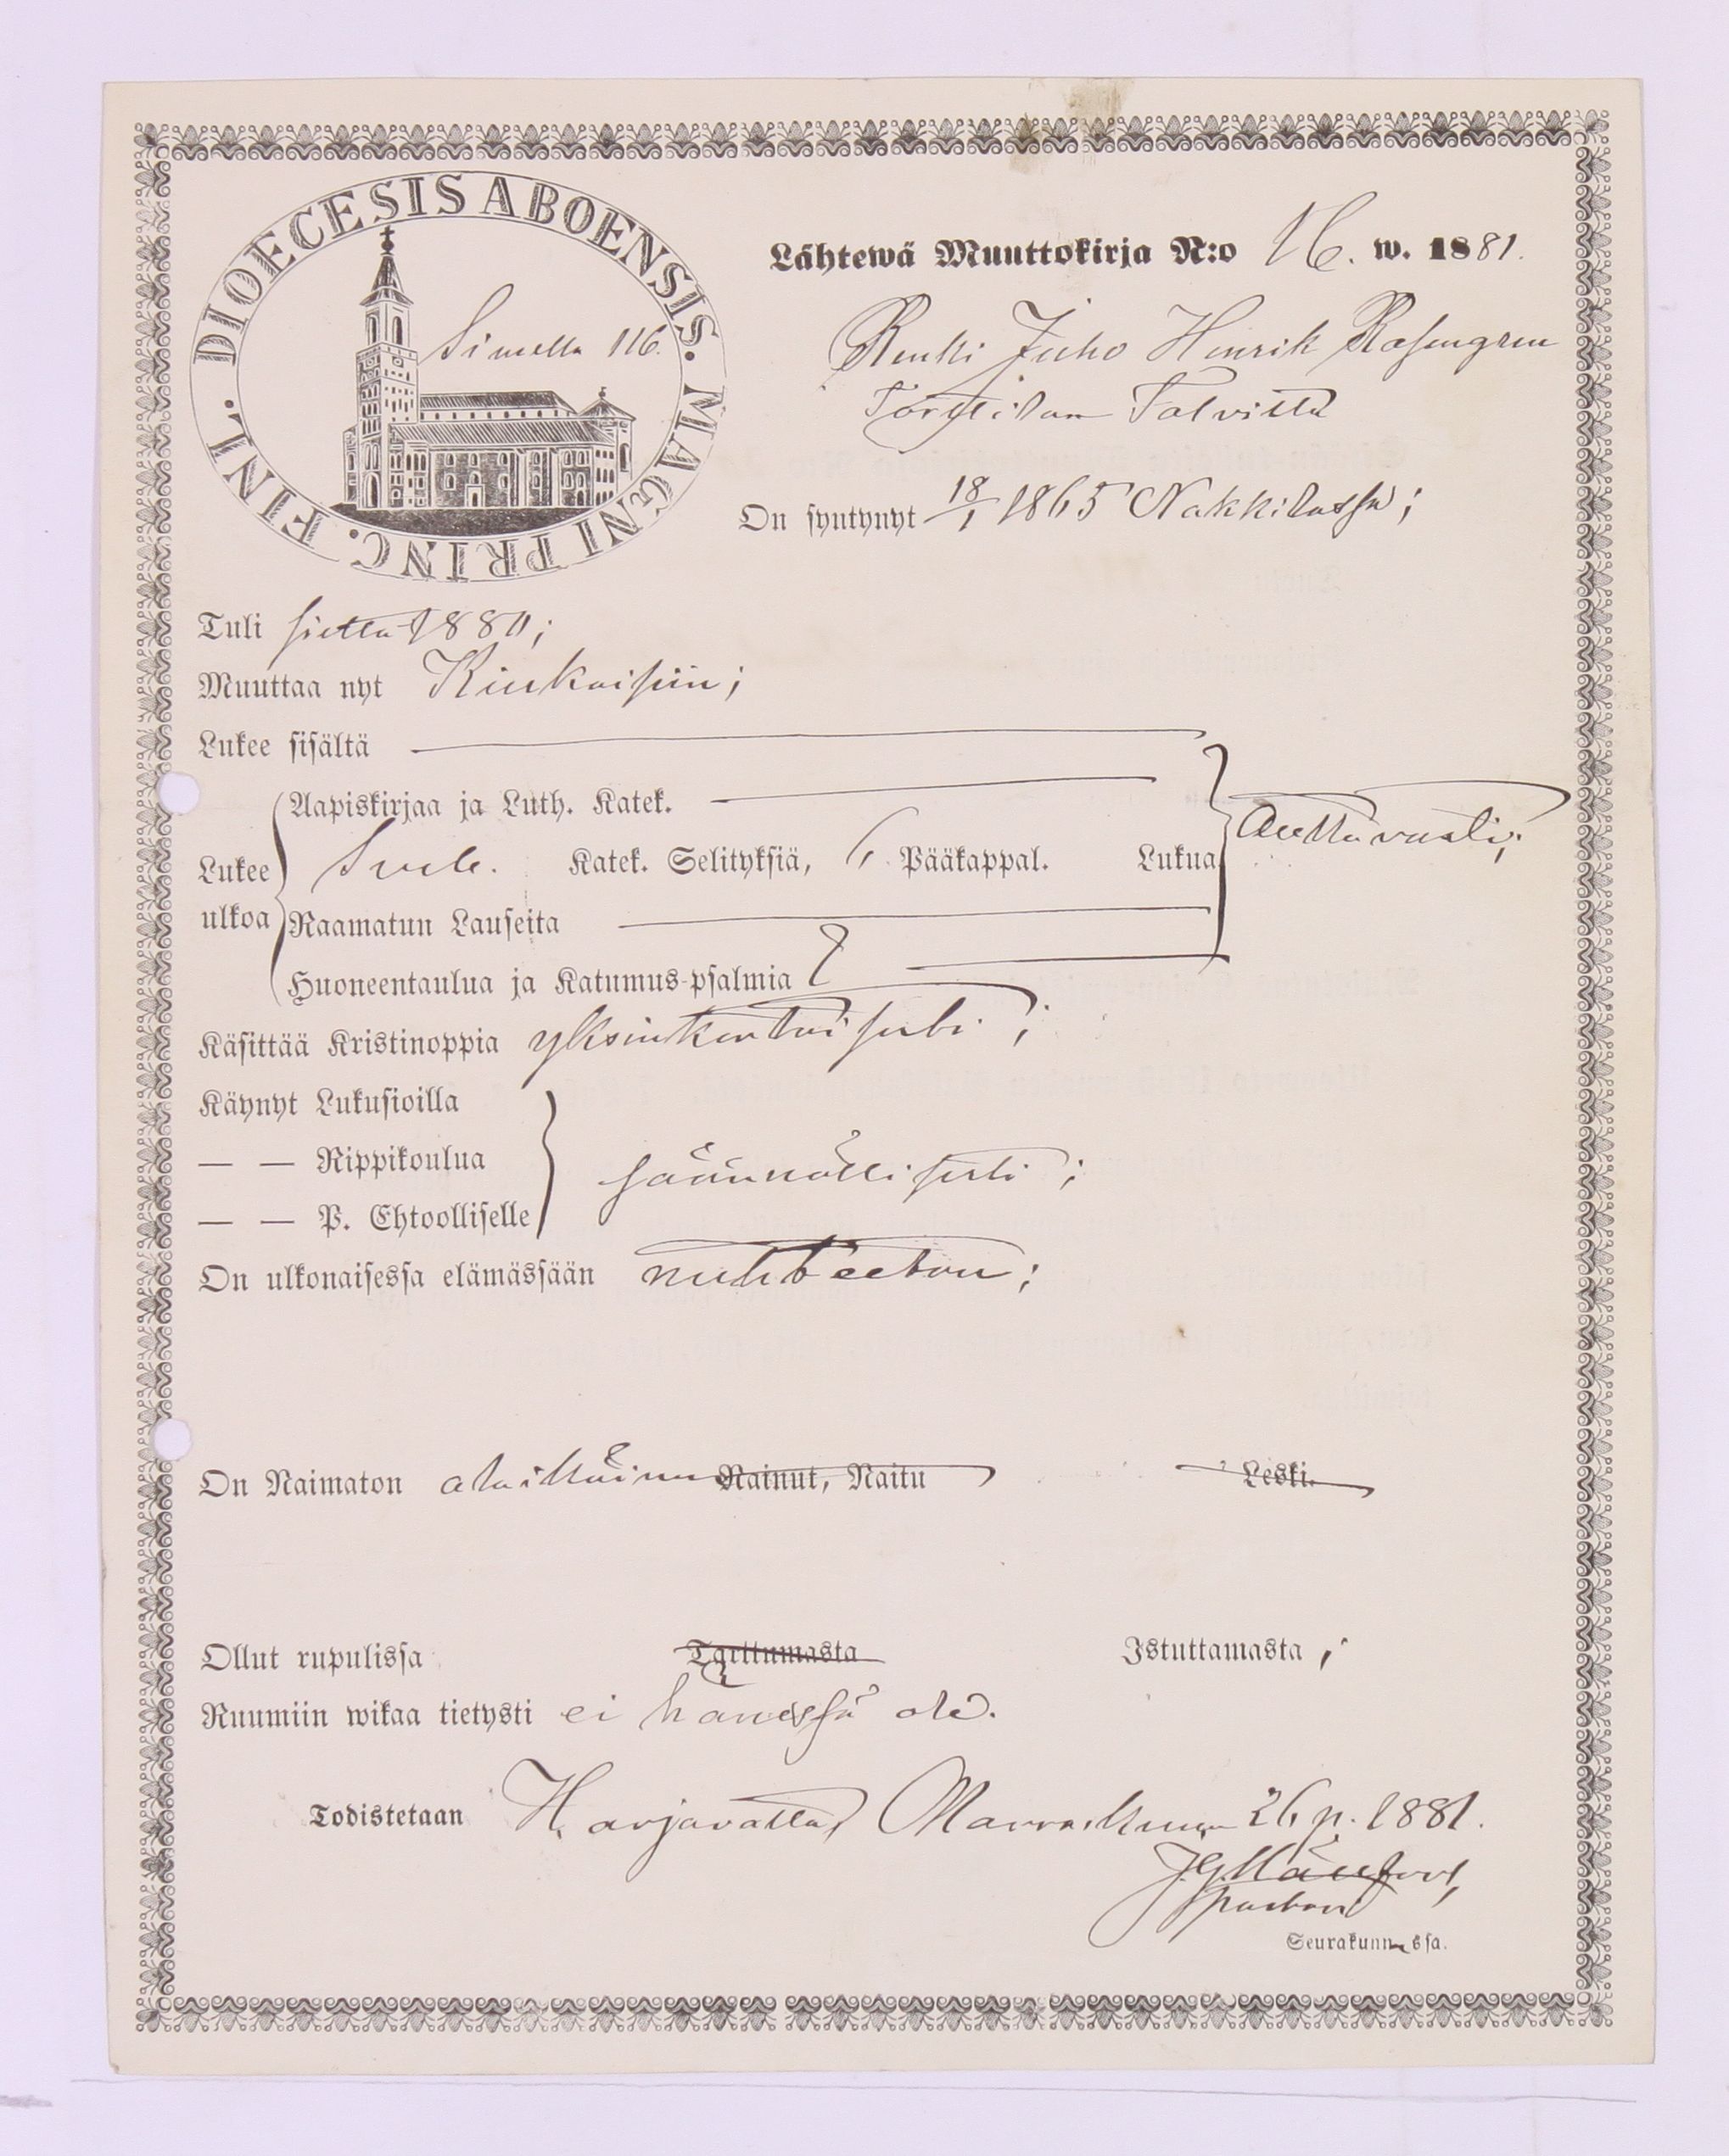 DIOECESIS ABOENSIS. MAGNI PRINC. FINL.
Simella 116.
Lähtewä Muuttokirja N:o 16. w. 1881.
Renki Juho Henrik Rosengren
Torttilan Talvitt
On syntynyt 18/1 1865 Nakkilassa;
Tuli sieltä 1880;
Muuttaa nyt Kiukaisiin;
Lukee sisältä
Aapiskirjaa ja Luth. Katek.
Auttavasti;
Lukee ulkoa Sveb. Katek. Selityksiä, 6 Pääkappal. Lukua
Raamatun Lauseita
Huoneentaulua ja Katumus-psalmia
Käsittää Kristinoppia yksinkertaisesti;
Käynyt Lukusioilla
— — Rippikoulua säännöllisesti;
— — P. Ehtoolliselle
On ulkonaisessa elämässään nuhteeton;
On Naimaton alaikäinen Nainut, Naitu Leski.
Ollut rupulissa Tarttumasta Istuttamasta;
Ruumiin wikaa tietysti ei hänessä ole.
Todistetaan Harjavalta, Marraskuun 26 p. 1881.
pastori
Seurakunnassa.